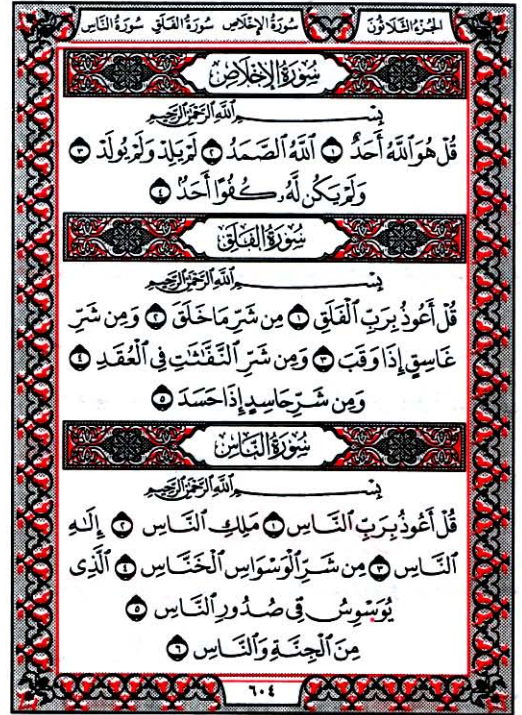 الجزء الثلاثون
سورة الإخلاص سورة الفلق سورة الناس
سُورَةُ الإِخْلَاصِ
بِسْمِ ٱللَّهِ ٱلرَّحْمَٰنِ ٱلرَّحِيمِ
قُلْ هُوَ ٱللَّهُ أَحَدٌ ١ ٱللَّهُ ٱلصَّمَدُ ٢ لَمْ يَلِدْ وَلَمْ يُولَدْ ٣
وَلَمْ يَكُن لَّهُۥ كُفُوًا أَحَدٌۢ ٤
سُورَةُ الفَلَقِ
بِسْمِ ٱللَّهِ ٱلرَّحْمَٰنِ ٱلرَّحِيمِ
قُلْ أَعُوذُ بِرَبِّ ٱلْفَلَقِ ١ مِن شَرِّ مَا خَلَقَ ٢ وَمِن شَرِّ
غَاسِقٍ إِذَا وَقَبَ ٣ وَمِن شَرِّ ٱلنَّفَّٰثَٰتِ فِي ٱلْعُقَدِ ٤
وَمِن شَرِّ حَاسِدٍ إِذَا حَسَدَ ٥
سُورَةُ النَّاسِ
بِسْمِ ٱللَّهِ ٱلرَّحْمَٰنِ ٱلرَّحِيمِ
قُلْ أَعُوذُ بِرَبِّ ٱلنَّاسِ ١ مَلِكِ ٱلنَّاسِ ٢ إِلَٰهِ
ٱلنَّاسِ ٣ مِن شَرِّ ٱلْوَسْوَاسِ ٱلْخَنَّاسِ ٤ ٱلَّذِى
يُوَسْوِسُ فِي صُدُورِ ٱلنَّاسِ ٥
مِنَ ٱلْجِنَّةِ وَٱلنَّاسِ ٦
٦٠٤